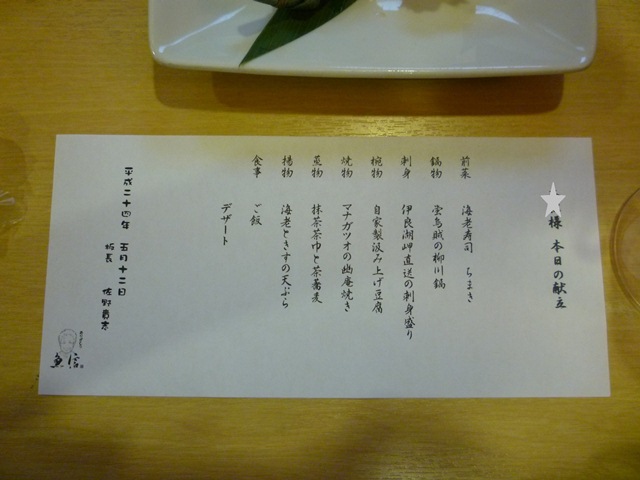 様 本日の献立
前菜 海老寿司 ちまき
鍋物 蛍烏賊の柳川鍋
刺身 伊良湖岬直送の刺身盛り
椀物 自家製汲み上げ豆腐
焼物 マナガツオの幽庵焼き
蒸物 抹茶茶巾と茶蕎麦
揚物 海老ときすの天ぷら
食事 ご飯
デザート
平成二十四年 五月十二日
板長 佐野貴志
魚信